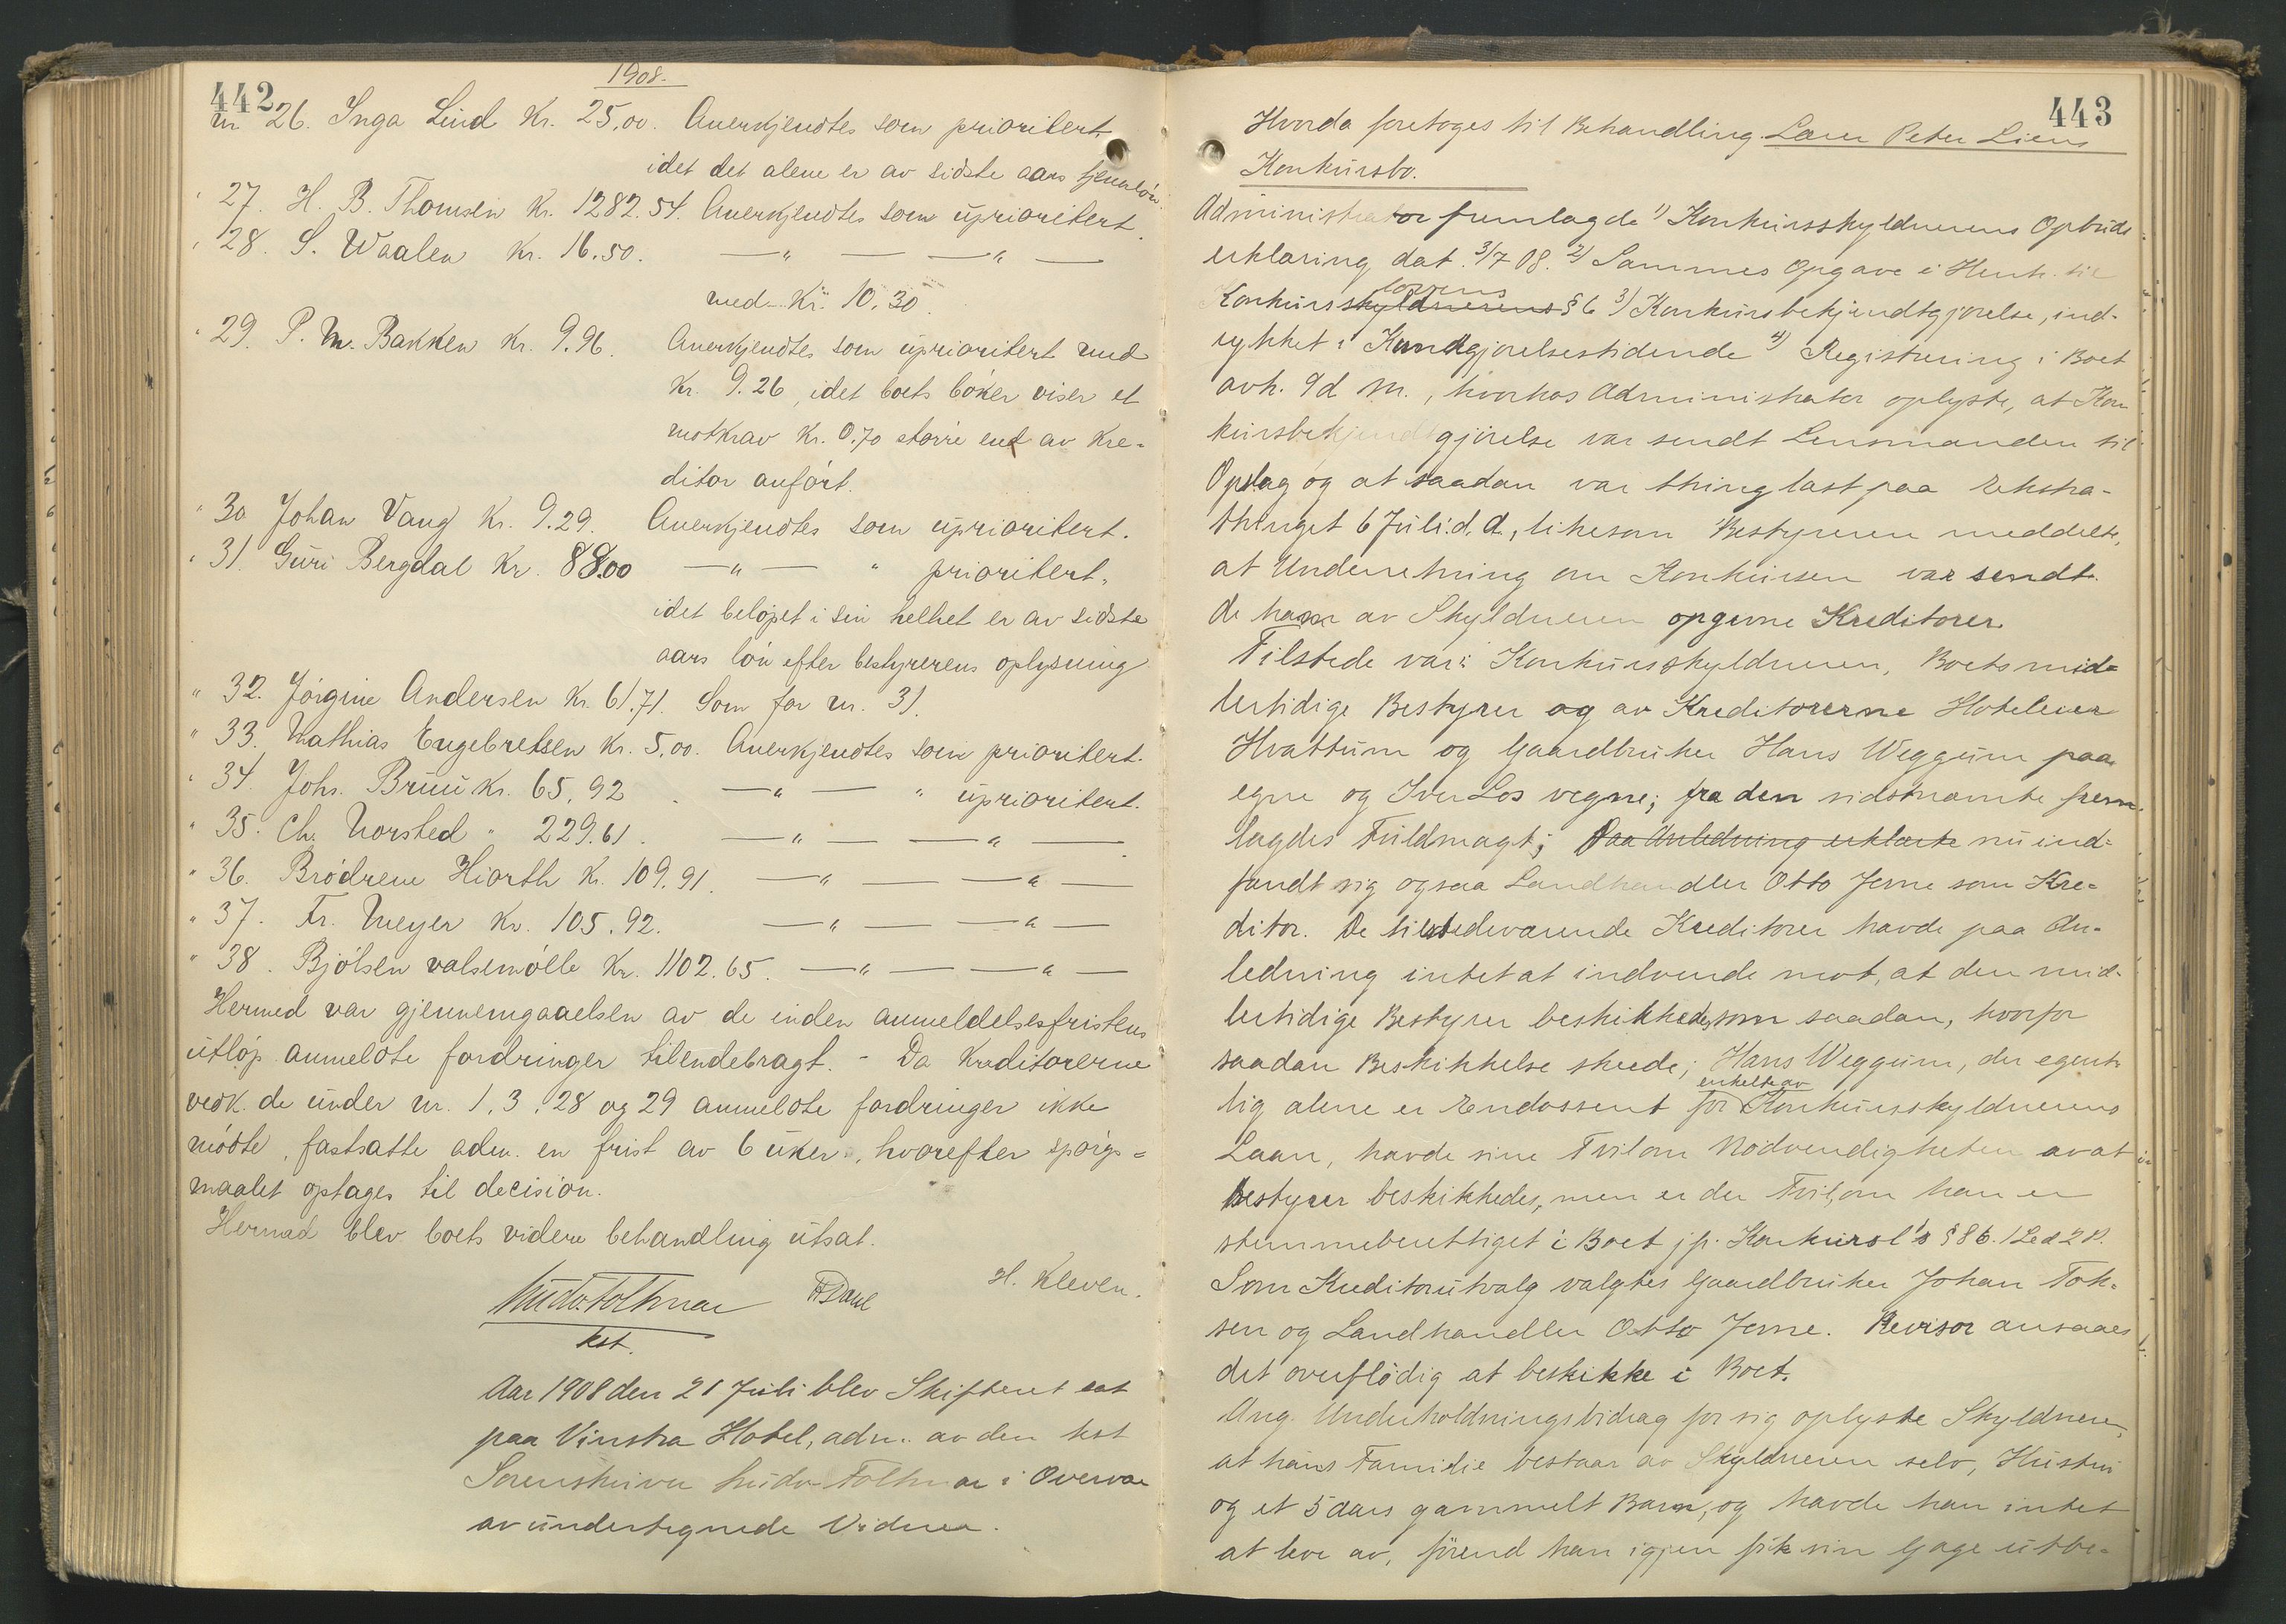 442
1908.
nr 26. Inga Lind Kr. 25,00. Anerkjendtes som prioritert
idet det alene er av sidste aars tjenerløn
" 27. H. B. Thomsen Kr. 1282.54. Anerkjendtes som uprioritert.
" 28. S. Waalen Kr. 16.50. — " — — " —
med Kr. 10.30.
" 29. P. M. Bakken Kr. 9.96. Anerkjendtes som uprioritert med
Kr. 9.26, idet boets bøker viser et
motkrav Kr. 0.70 større end av kre-
ditor anført.
" 30 Johan Vang Kr. 9.29. Anerkjendtes som uprioritert.
" 31. Guri Bergdal Kr. 88.00 — " — " prioritert,
idet beløpet i sin helhet er av sidste
aars løn efter bestyrerens oplysning
" 32. Jørgine Andersen Kr. 61.71. Som for nr. 31.
" 33. Mathias Engebretsen Kr. 5,00. Anerkjendtes som prioritert.
" 34. Johs. Bruu Kr. 65,92. — " — " uprioritert.
" 35. Ch. Norsted " 229.61. — " — — " —
" 36. Brødrene Hiorth Kr. 109.91. — " — — " —
" 37. Fr. Meyer Kr. 105.92. — " — — " —
" 38. Bjølsen valsemølle Kr. 1102.65. — " — — " —
Hermed var gjennemgaaelsen av de inden anmeldelsesfristens
utløp anmeldte fordringer tilendebragt. - Da kreditorerne
vedk. de under nr. 1, 3, 28 og 29 anmeldte fordringer ikke
mødte, fastsatte adm. en frist av 6 uker, hvorefter spørgs=
maalet optages til decision.
Hermed blev boets videre behandling utsat.
H. Kleven.
kst.
Aar 1908 den 21 Juli blev Skifteret sat
paa Vinstra Hotel, adm. av den kst
Sorenskriver Ludv. Tolhnar i Overvær
av undertegnede Vidner.
443
Hvorda foretoges til Behandling Lars Peter Liens
Konkursbo.
Administrator fremlagde 1) Konkursskyldnerens Opbuds
erklæring dat. 3/7 08. 2) Sammes Opgave i Henh. til
lovens
Konkursskyldnerens § 6 3) Konkursbekjendtgjørelse, ind-
rykket i Kundgjørelsestidende 4) Registrering i Boet
avh. 9 d. M., hvorhos Administrator oplyste, at Kon
kursbekjendtgjørelse var sendt Lensmanden til
Opslag og at saadan var thinglæst paa Ekstra-
thinget 6 Juli d. A., likesom Bestyreren meddelte,
at Underretning om Konkursen var sendt
de ham av Skyldneren opgivne Kreditorer.
Tilstede var: Konkursskyldneren, Boets mid=
lertidige Bestyrer og av Kreditorerne Hoteleier
Hvattum og Gaardbruker Hans Weggum paa
egne og Iver Los vegne; fra den sidstnævnte frem
lagdes Fuldmagt; Paa Anledning erklærte nu ind-
fandt sig ogsaa Landhandler Otto Jerne som Kre-
ditor. De tilstedeværende Kreditorer havde paa An-
ledning intet at indvende mot, at den mid-
lertidige Bestyrer beskikkedes som saadan, hvorfor
saadan Beskikkelse skede; Hans Weggum, der egent-
enkelte av
lig alene er Endossent for Konkursskyldnerens
Laan, havde sine Tvil om Nødvendigheten av at
Bestyrer beskikkedes, men er der Tvil, om han er
stemmeberettiget i Boet jfr. Konkursl's § 86. 1 Led 2 P.
Som Kreditorutvalg valgtes Gaardbruker Johan Tok-
sen og Landhandler Otto Jerne. Revisor ansaaes
det overflødig at beskikke i Boet.
Ang. Underholdningsbidrag for sig oplyste Skyldneren,
at hans Familie bestaar av Skyldneren selv, Hustru
og et 5 aars gammelt Barn, og havde han intet
at leve av, førend han igjen fik sin Gage utbe-